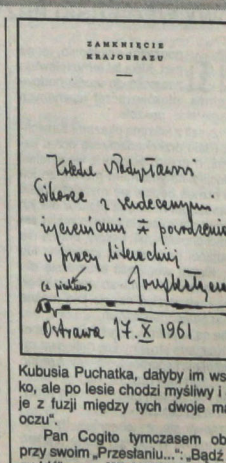 ZAMKNIĘCIE
KRAJOBRAZU
Koledze Władysławowi
Sikorze z serdecznymi
życzeniami powodzenia
w pracy literackiej
Ostrawa 17. X 1961
Kubusia Puchatka, dałyby im ws
ko, ale po lesie chodzi myśliwy i
je z fuzji między tych dwoje ma
oczu".
Pan Cogito tymczasem ob
przy swoim „Przesłaniu...": „Bądź